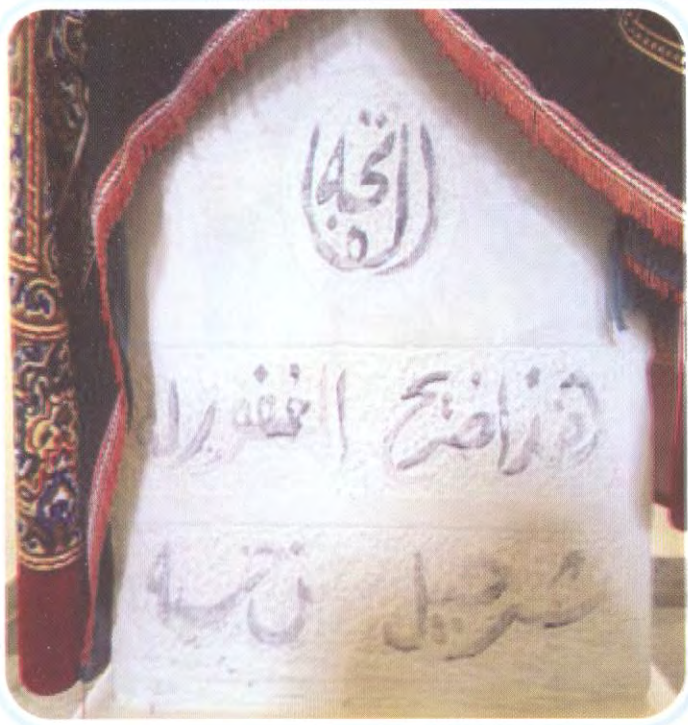 الفاتحة
هذا ضريح المغفور له
شرحبيل بن حسنه